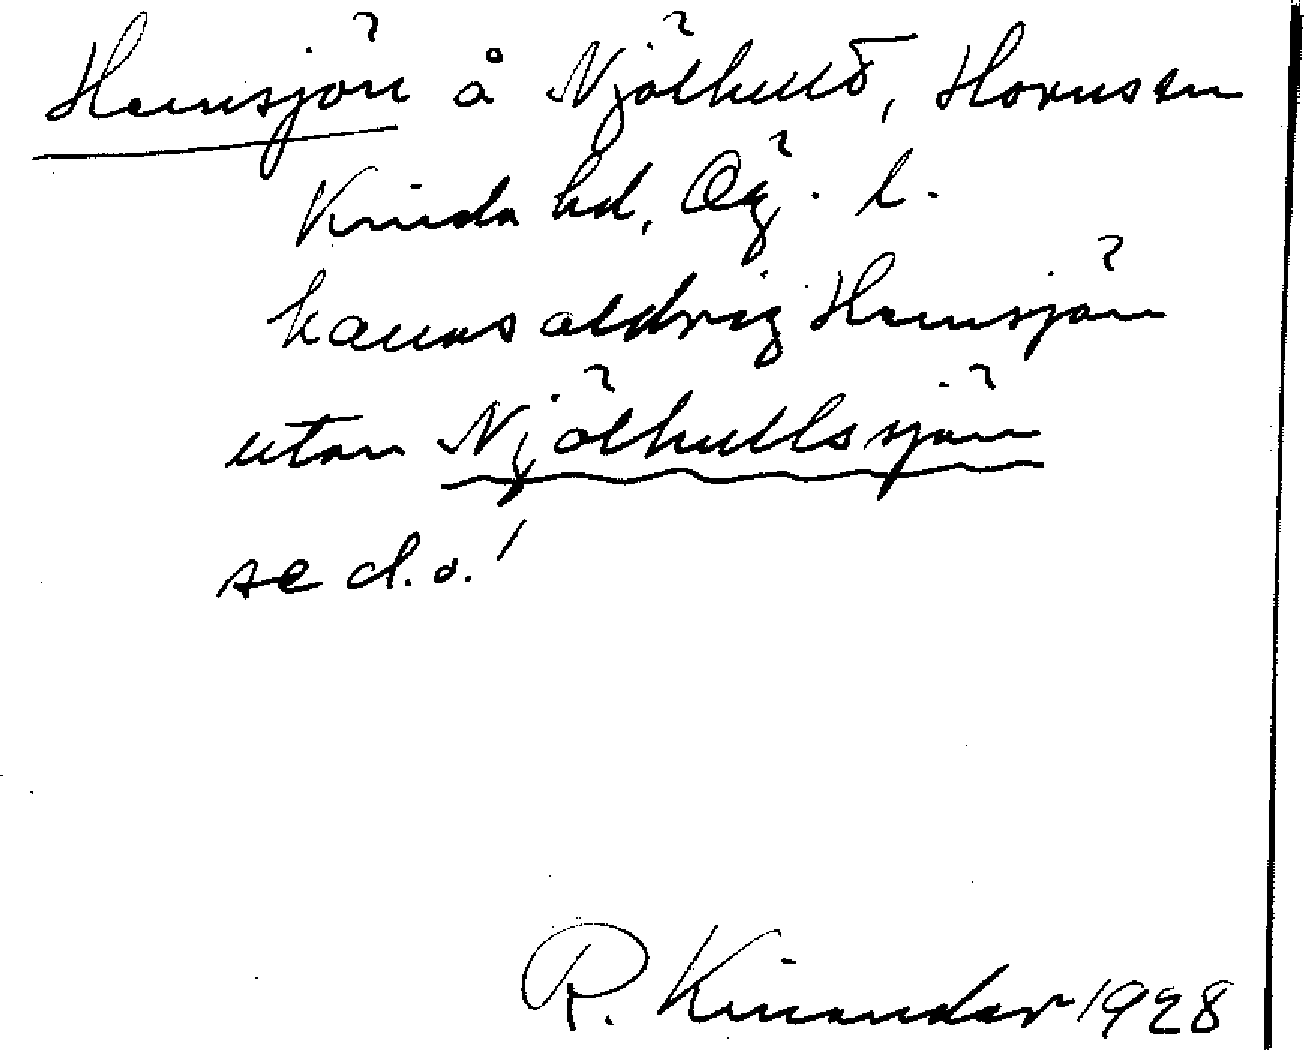 Hemsjön å Njölhult, Horns sn
Kinda hd, Ög. l.
kallas aldrig Hemsjön
utan Njölhultssjön
se d.o.!
R. Kinander 1928